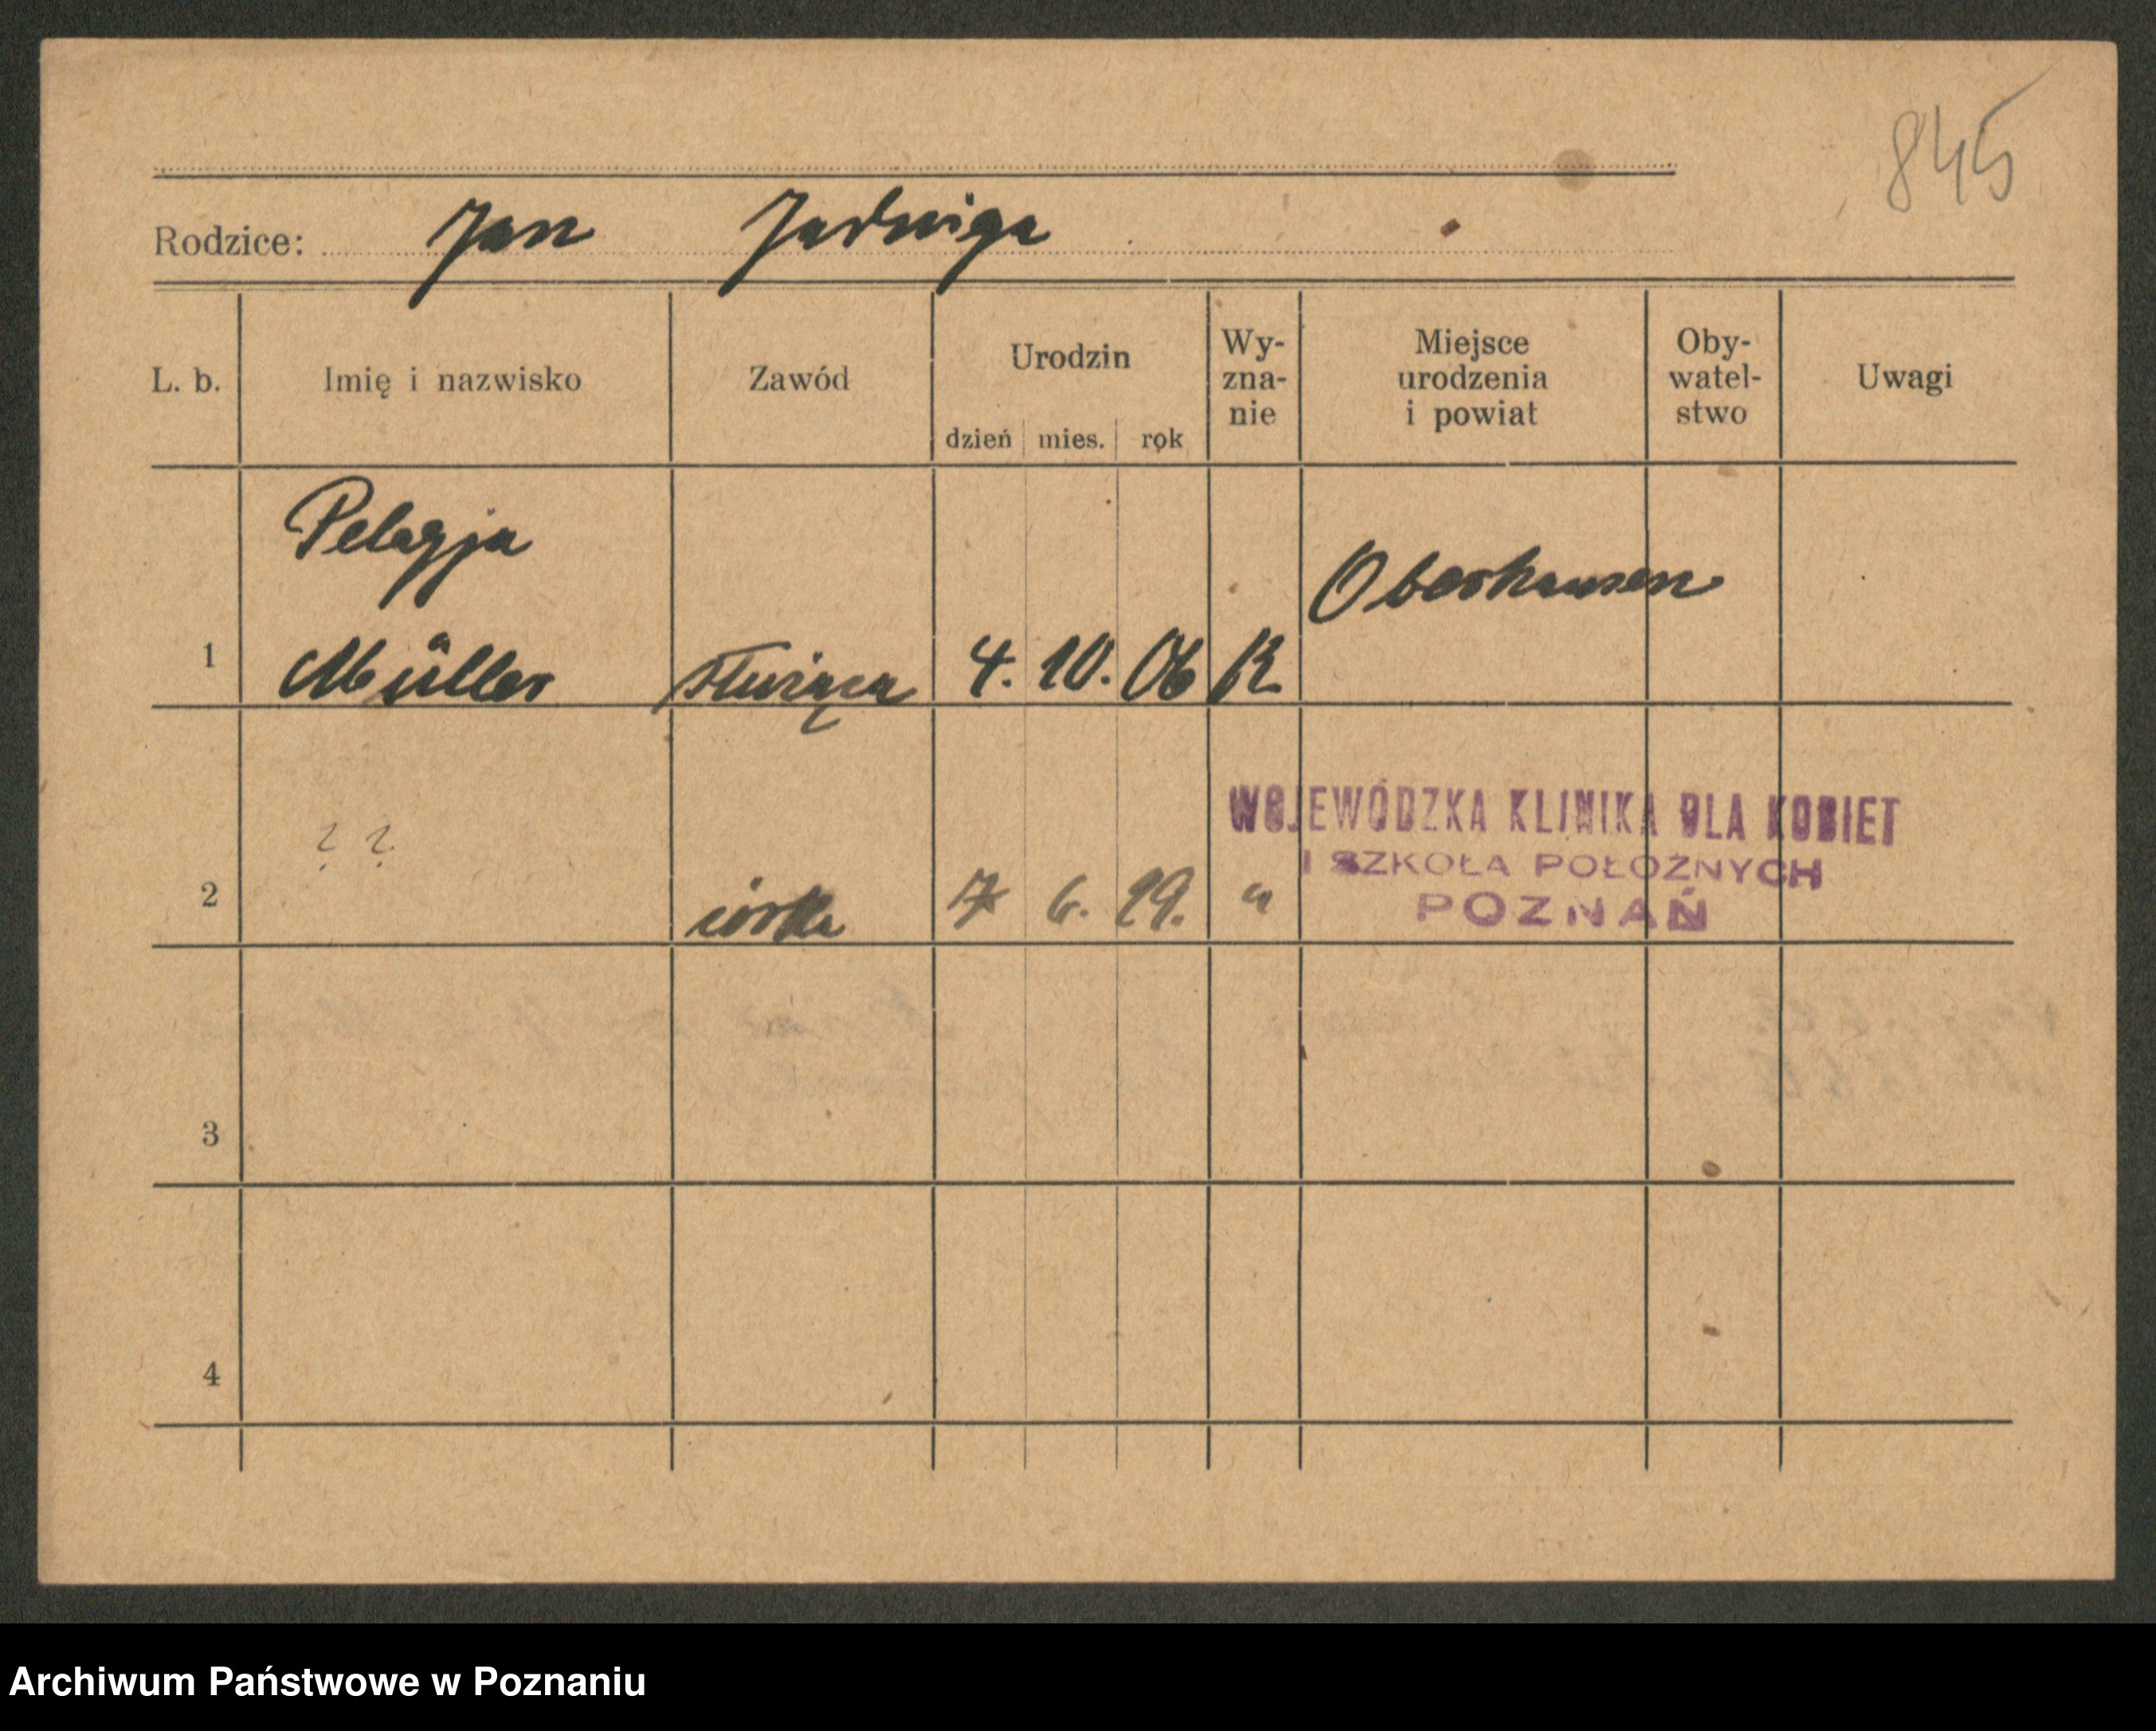 845
Rodzice: Jan Jadwiga
L. b. Imię i nazwisko Zawód Urodzin dzień mies. rok Wy-zna-nie Miejsce urodzenia i powiat Oby-watel-stwo Uwagi
Pelagja
Oberhausen
1 Müller służąca 4. 10. 06 K.
? ?
WOJEWÓDZKA KLINIKA DLA KOBIET
I SZKOŁA POŁOŻNYCH
POZNAŃ
2 córka 7 6. 29. "
3
4
Archiwum Państwowe w Poznaniu